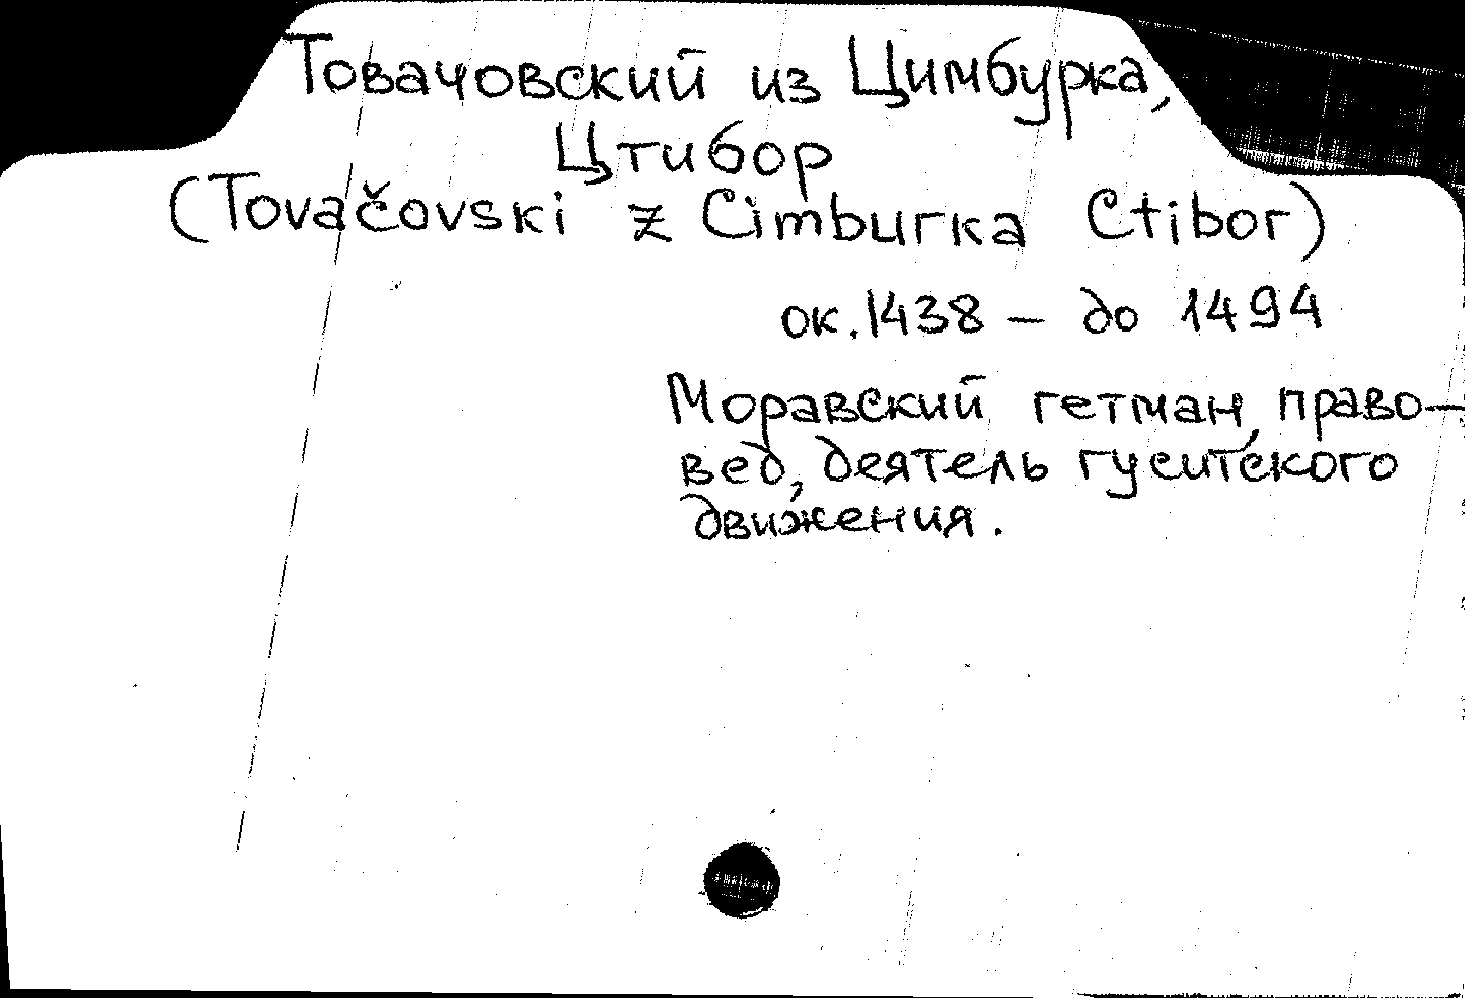 Товачовский из Цимбурка,
Цтибор
(Tovačovski z Cimburka Ctibor)
ок. 1438 – до 1494
Моравский гетман, право-
вед, деятель гуситского
движения.